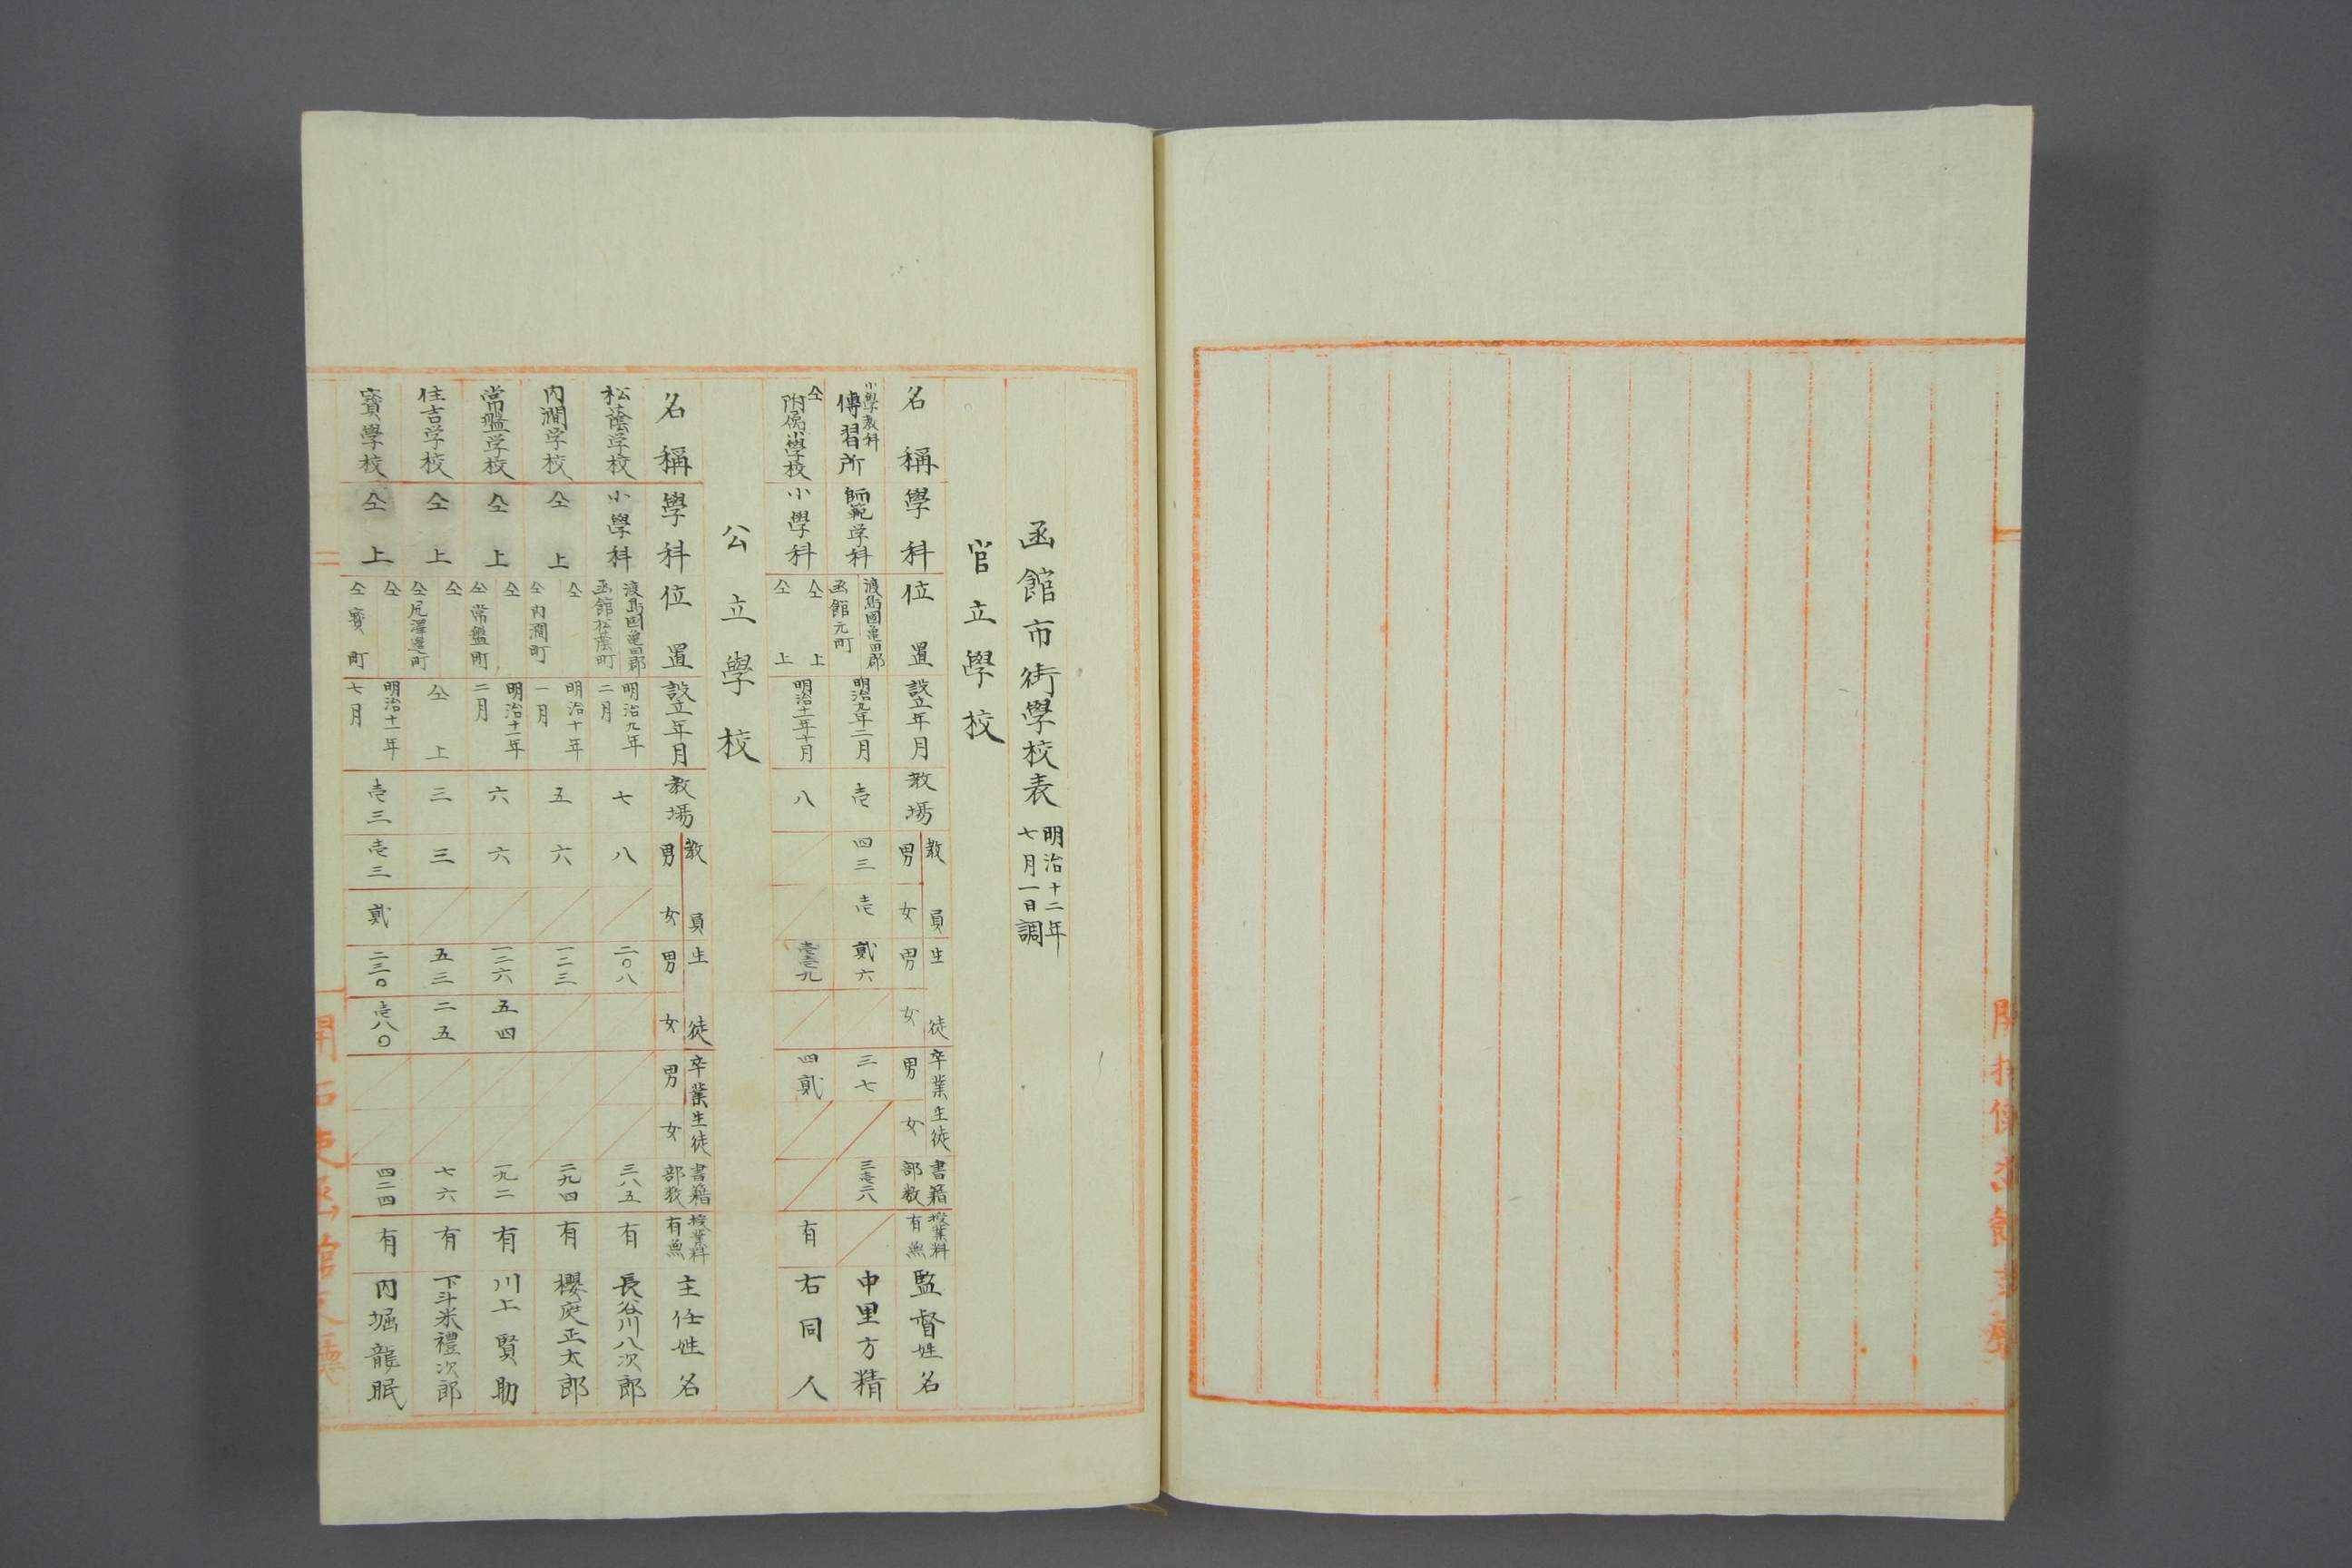 函館市街學校表 明治十二年
七月一日調
官立學校
名稱 學科 位置 設立年月 教場 教員 男 女 生徒 男 女 卒業生徒 男 女 書籍部数 授業料有無 監督姓名
小學教科傳習所 師範学科 渡島国亀田郡函館元町 明治九年二月 壱 四三 壱 貳六 三七 三壱二八 中里方精
仝附属小學校 小學科 仝上仝上 明治十一年十月 八 壱壱九 四貳 有 右同人
公立學校
名稱 學科 位置 設立年月 教場 教員 男 女 生徒 男 女 卒業生徒 男 女 書籍部数 授業料有無 主任姓名
松蔭学校 小學科 渡島国亀田郡函館松蔭町 明治九年二月 七 八 二〇八 三八五 有 長谷川八次郎
内澗学校 仝上 仝仝内澗町 明治十年一月 五 六 一二三 二九四 有 櫻庭正太郎
常盤学校 仝上 仝仝常盤町 明治十一年二月 六 六 一二六 五四 一九二 有 川上賢助
住吉学校 仝上 仝仝尻澤邊町 仝上 三 三 五三 二五 七六 有 下斗米禮次郎
寳學校 仝上 仝仝寳町 明治十一年七月 壱三 壱三 貳 二三〇 壱八〇 四二四 有 内堀龍眠